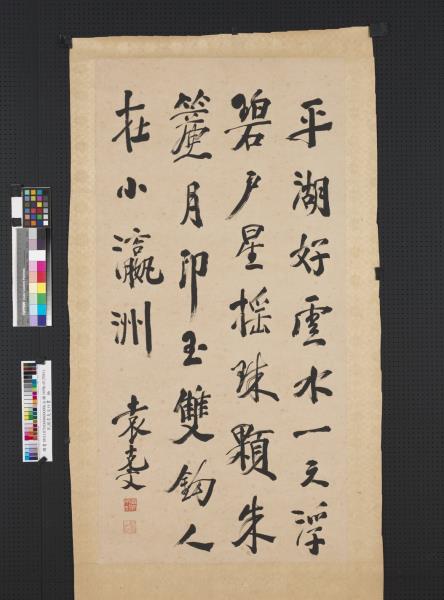 平湖好雲水一天浮
碧戶星搖珠顆朱
簾月印玉雙鉤人
在小瀛洲
袁克文